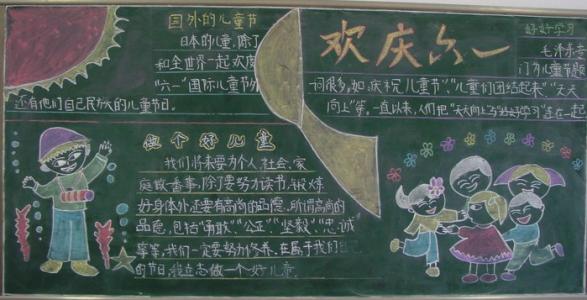 国外的儿童节
日本的儿童,除了
和全世界一起欢度
"六一"国际儿童节外
还有他们自己民族的儿童节日。
欢庆六一
好好学习
毛泽东
门为儿童节题
词很多,如"庆祝儿童节""儿童们团结起来""天天
向上"等。一直以来,人们把"天天向上"与"好好学习"连在一起
做个好儿童
我们将来要为个人、社会、家
庭做番事,除了要努力读书、锻炼
好身体外还要有高尚的品德,所谓高尚的
品德,包括"勇敢""公正""坚毅""忠诚"
等等,我们一定要努力修养。在属于我们自己
的节日,我立志做一个好儿童。